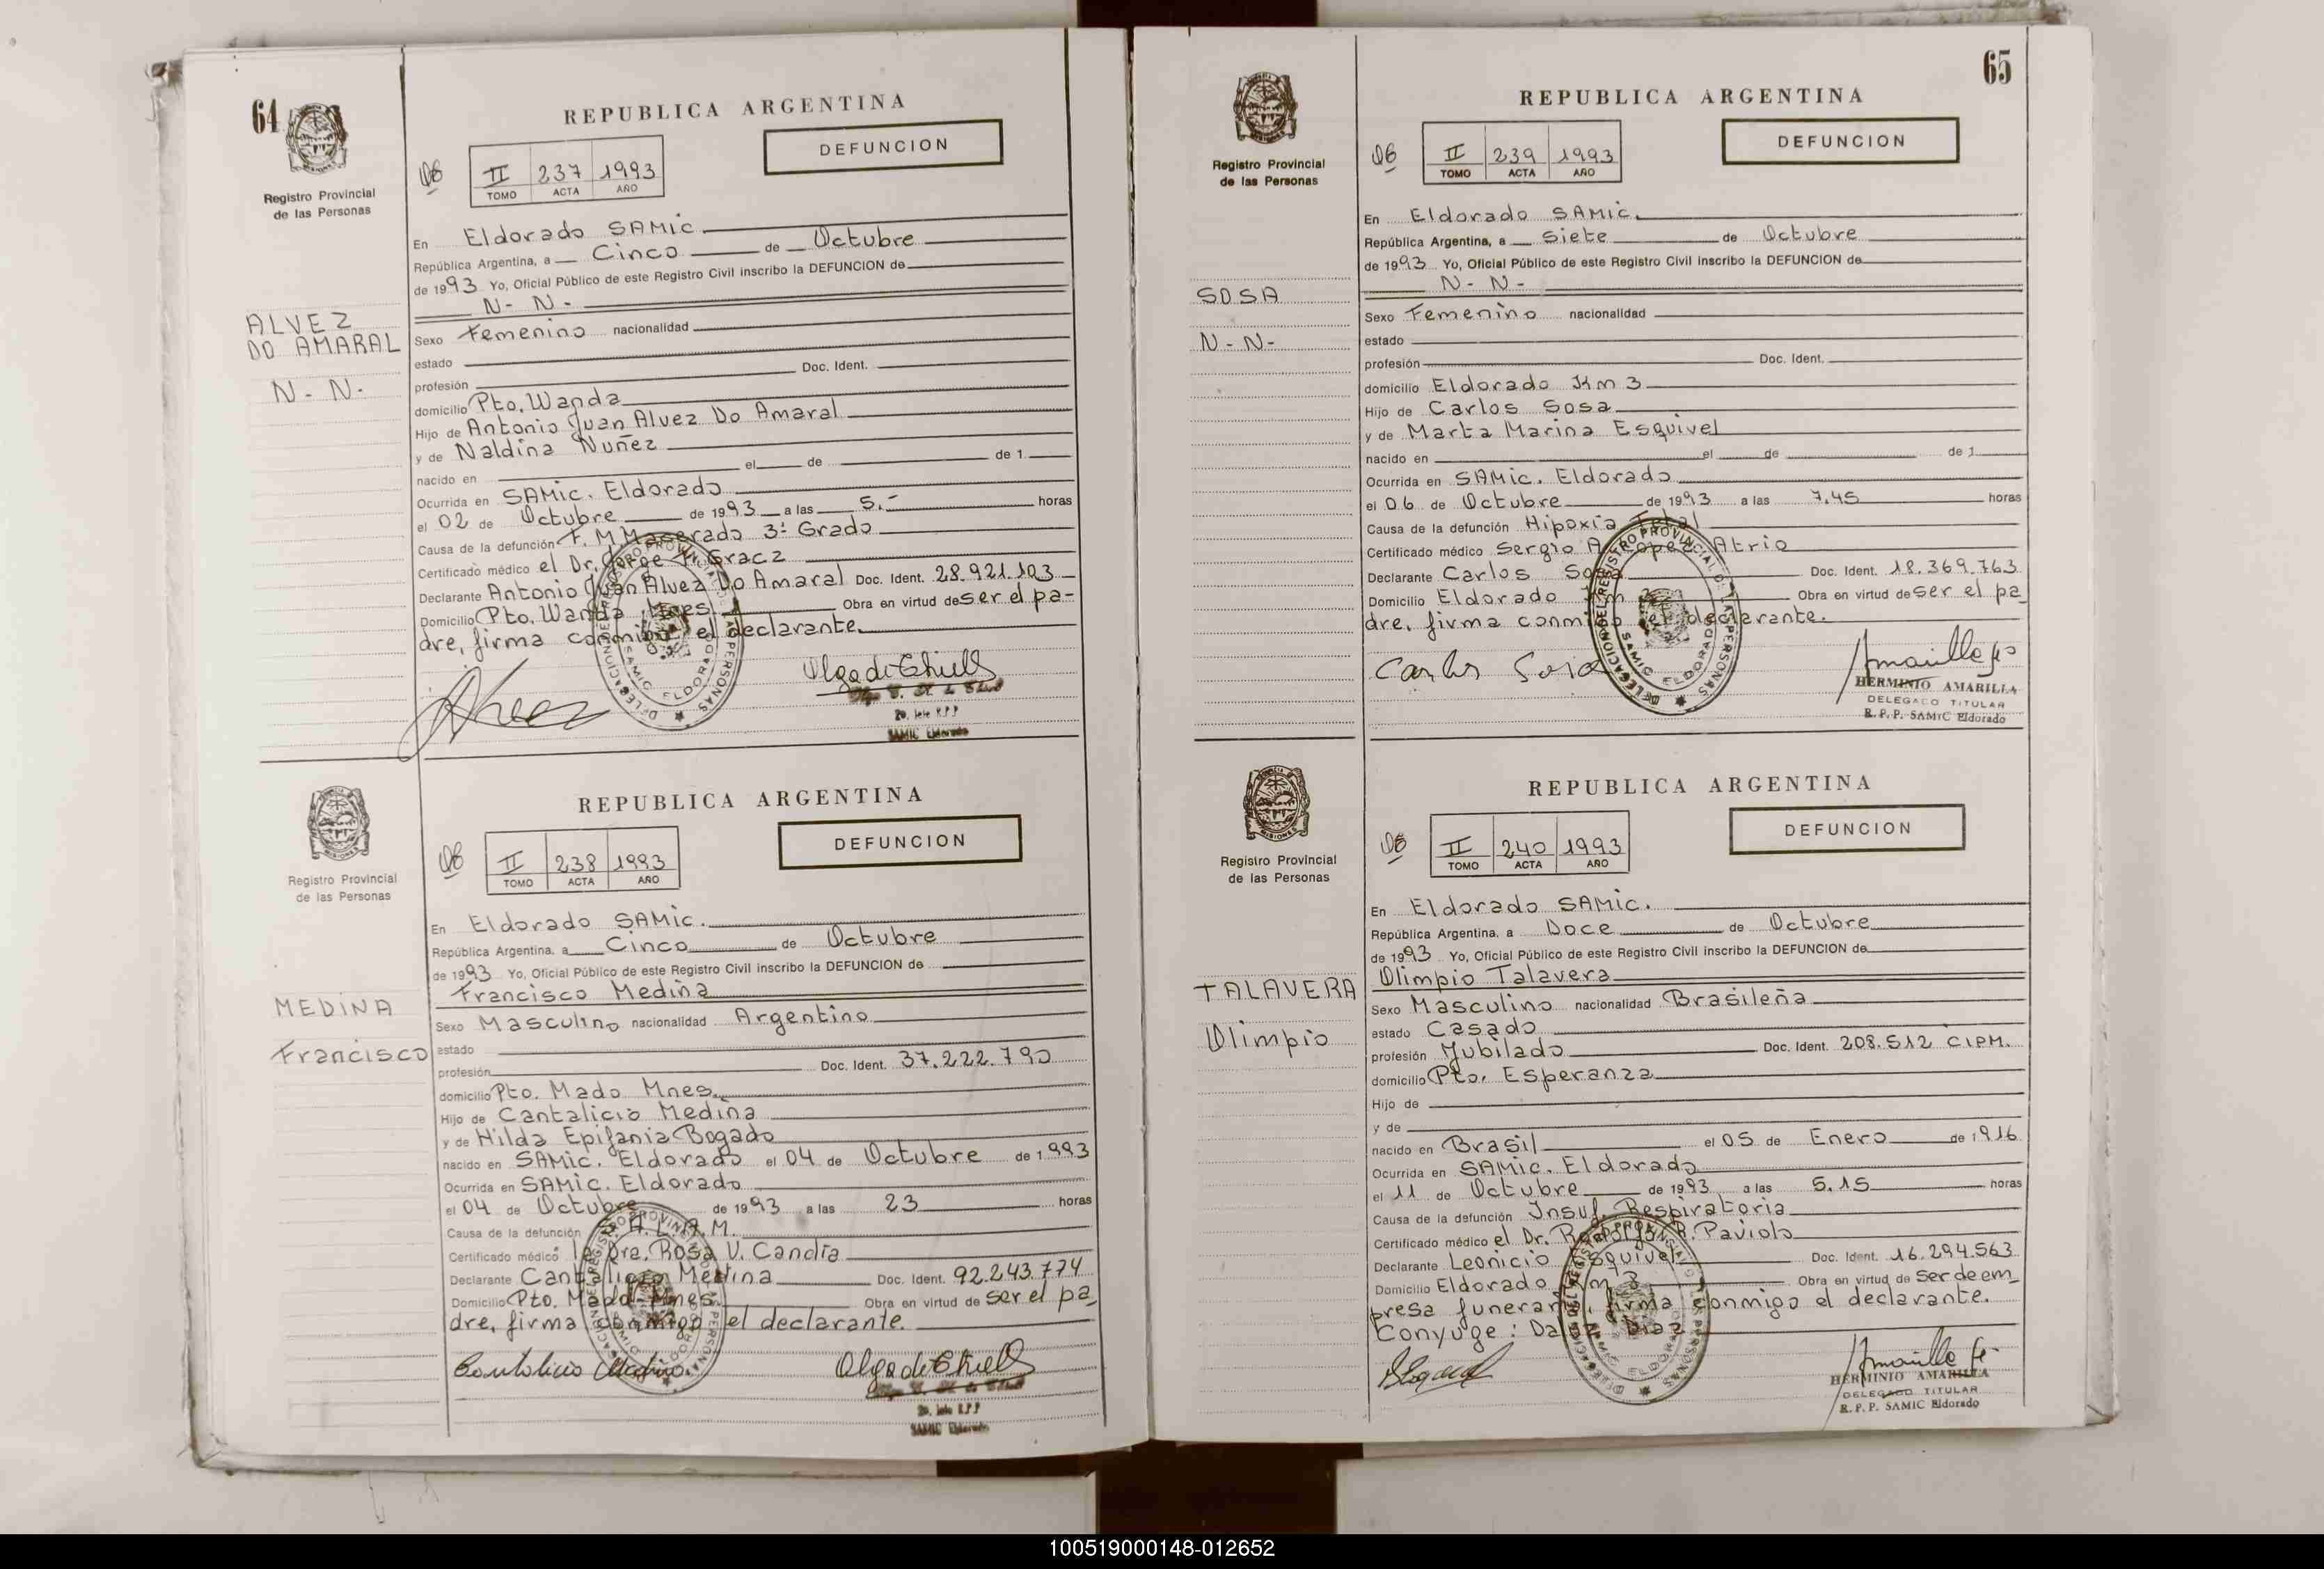 64
Registro Provincial
de las Personas
REPUBLICA ARGENTINA
DEFUNCION
II 237 1993
TOMO ACTA AÑO
ALVEZ
DO AMARAL
N- N-
En Eldorado SAMic.
República Argentina, a Cinco de Octubre
de 1993 Yo, Oficial Público de este Registro Civil inscribo la DEFUNCION de
N- N-
Sexo Femenino nacionalidad
estado
profesión Doc. Ident.
domicilio Pto. Wanda
Hijo de Antonio Juan Alvez Do Amaral
y de Naldina Nuñez
nacido en el de de 1
Ocurrida en SAMic. Eldorado
el 02 de Octubre de 1993 a las 5.- horas
Causa de la defunción F. M Macerado 3º Grado
Certificado médico el Dr. Jorge Gracz
Declarante Antonio Juan Alvez Do Amaral Doc. Ident. 28.921.103
Domicilio Pto. Wanda Mnes Obra en virtud de ser el pa-
dre, firma conmigo el declarante.
Alvez
Olga de Chiell
2o. Jefe R.P.P
SAMIC Eldorado
Registro Provincial
de las Personas
REPUBLICA ARGENTINA
DEFUNCION
II 238 1993
TOMO ACTA AÑO
MEDINA
Francisco
En Eldorado SAMic.
República Argentina, a Cinco de Octubre
de 1993 Yo, Oficial Público de este Registro Civil inscribo la DEFUNCION de
Francisco Medina
Sexo Masculino nacionalidad Argentino
estado
profesión Doc. Ident. 37.222.790
domicilio Pto. Mado Mnes.
Hijo de Cantalicio Medina
y de Hilda Epifania Bogado
nacido en SAMic. Eldorado el 04 de Octubre de 1.993
Ocurrida en SAMic. Eldorado
el 04 de Octubre de 1993 a las 23 horas
Causa de la defunción A.L.A.M.
Certificado médico la Dra. Rosa V. Candia
Declarante Cantalicio Medina Doc. Ident. 92.243.774
Domicilio Pto. Mado Mnes Obra en virtud de ser el pa
dre, firma conmigo el declarante.
Cantalicio Medina
Olga de Chiell
2o. Jefe R.P.P
SAMIC Eldorado
65
Registro Provincial
de las Personas
REPUBLICA ARGENTINA
DEFUNCION
II 239 1993
TOMO ACTA AÑO
SOSA
N- N-
En Eldorado SAMic.
República Argentina, a Siete de Octubre
de 1993 Yo, Oficial Público de este Registro Civil inscribo la DEFUNCION de
N- N-
Sexo Femenino nacionalidad
estado
profesión Doc. Ident.
domicilio Eldorado Km 3
Hijo de Carlos Sosa
y de Marta Marina Esquivel
nacido en el de de 1
Ocurrida en SAMic. Eldorado
el 06 de Octubre de 1993 a las 7.45 horas
Causa de la defunción Hipoxia Fetal
Certificado médico Sergio A Lopez Atrio
Declarante Carlos Sosa Doc. Ident. 18.369.763
Domicilio Eldorado Km 3 Obra en virtud de ser el pa
dre, firma conmigo el declarante.
Carlos Sosa
HERMINIO AMARILLA
DELEGADO TITULAR
R.P.P. SAMIC Eldorado
Registro Provincial
de las Personas
REPUBLICA ARGENTINA
DEFUNCION
II 240 1993
TOMO ACTA AÑO
TALAVERA
Olimpio
En Eldorado SAMic.
República Argentina, a Doce de Octubre
de 1993 Yo, Oficial Público de este Registro Civil inscribo la DEFUNCION de
Olimpio Talavera
Sexo Masculino nacionalidad Brasileña
estado Casado
profesión Jubilado Doc. Ident. 208.512 CIPM.
domicilio Pto. Esperanza
Hijo de
y de
nacido en Brasil el 05 de Enero de 1916
Ocurrida en SAMic. Eldorado
el 11 de Octubre de 1993 a las 5.15 horas
Causa de la defunción Insuf. Respiratoria
Certificado médico el Dr. Rodolfo R. Paviolo
Declarante Leonicio Esquivel Doc. Ident. 16.294.563
Domicilio Eldorado Km 3 Obra en virtud de ser de em
presa funeraria, firma conmigo el declarante.
Conyuge: Diaz
HERMINIO AMARILLA
DELEGADO TITULAR
R.P.P. SAMIC Eldorado
100519000148-012652